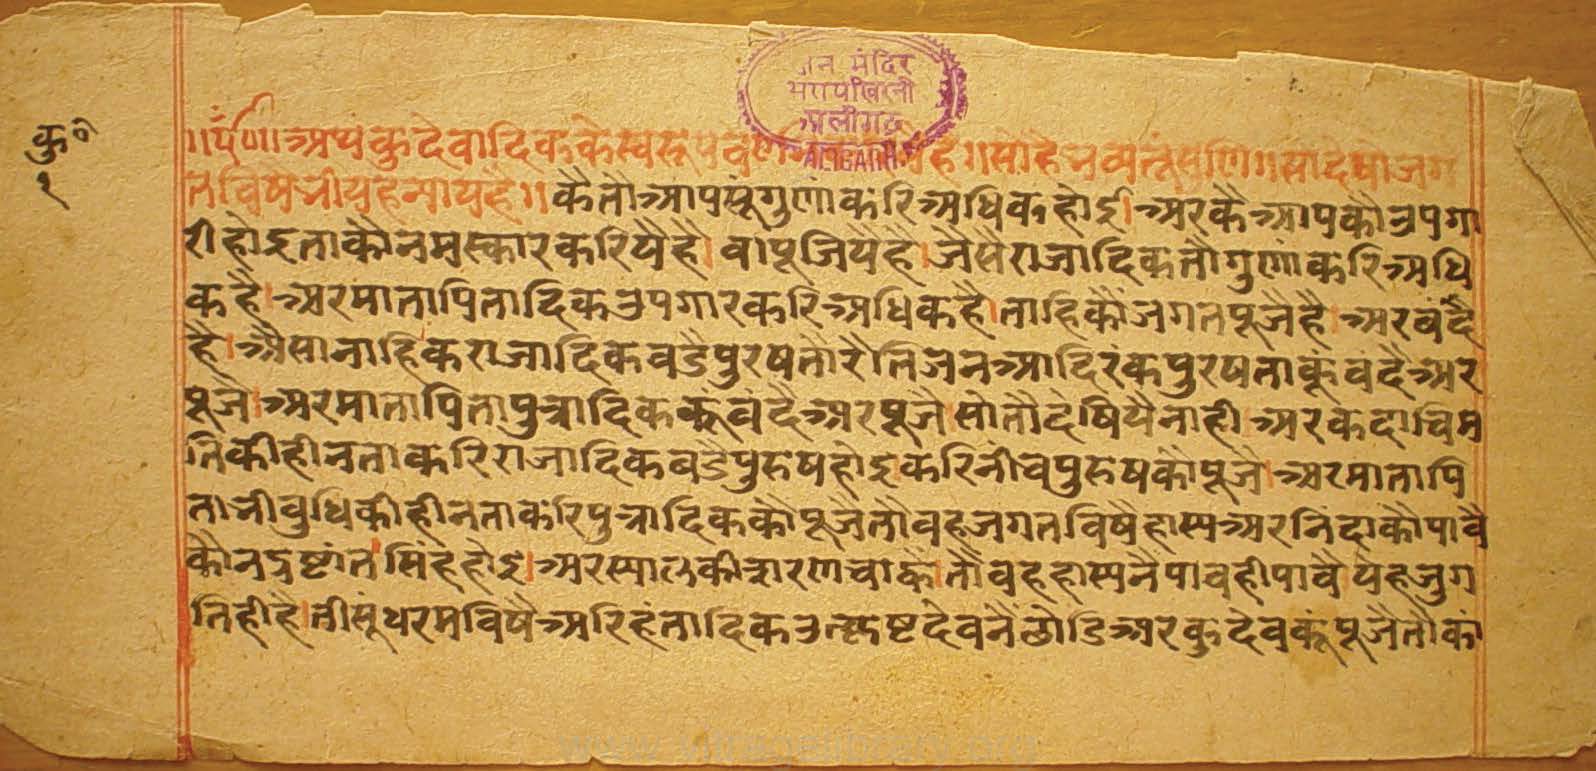 जैन मंदिर
अलीगढ़
ALIGARH
कु०
१
अथ कुदेवादिक के स्वरूप वर्णन
त विषै हैं न्याय है॥ कै तौ आपसूं गुणां करि अधिक होइ। अर कै आपकौ उपगा
री होइ ताकौ नमस्कार करियै है। वा पूजियै है। जैसै राजादिक तौ गुणां करि अधि
क है। अर मातापितादिक उपगार करि अधिक है। ताहि कौं जगत पूजै है। अर वंदै
है। औसा नाहि क राजादिक वडै पुरष तौ रैति जन आदि रंक पुरष ताकूं वंदै अर
पूजै। अर मातापिता पुत्रादिक कूं वंदै अर पूजै। सो तौ देषियै नाही। अर कदाचि म
ति की हीनता करि राजादिक बडै पुरुष होइ करि नीच पुरुष कौ पूजै। अर मातापि
ता भी बुधि की हीनता करि पुत्रादिक कौ पूजै तौ वह जगत विषै हास्य अर निंदा कौ पावै
कौन दृष्टांत सिंह होइ। अर स्याल की सरण चाहै। तौ वह हास्य नै पाव ही पावै। यह जुग
ति ही है। तीसूं धरम विषै अरिहंतादिक उत्कृष्ट देव नैं छोडि अर कुदेव कूं पूजै तौ कां
www.vitragelibrary.org